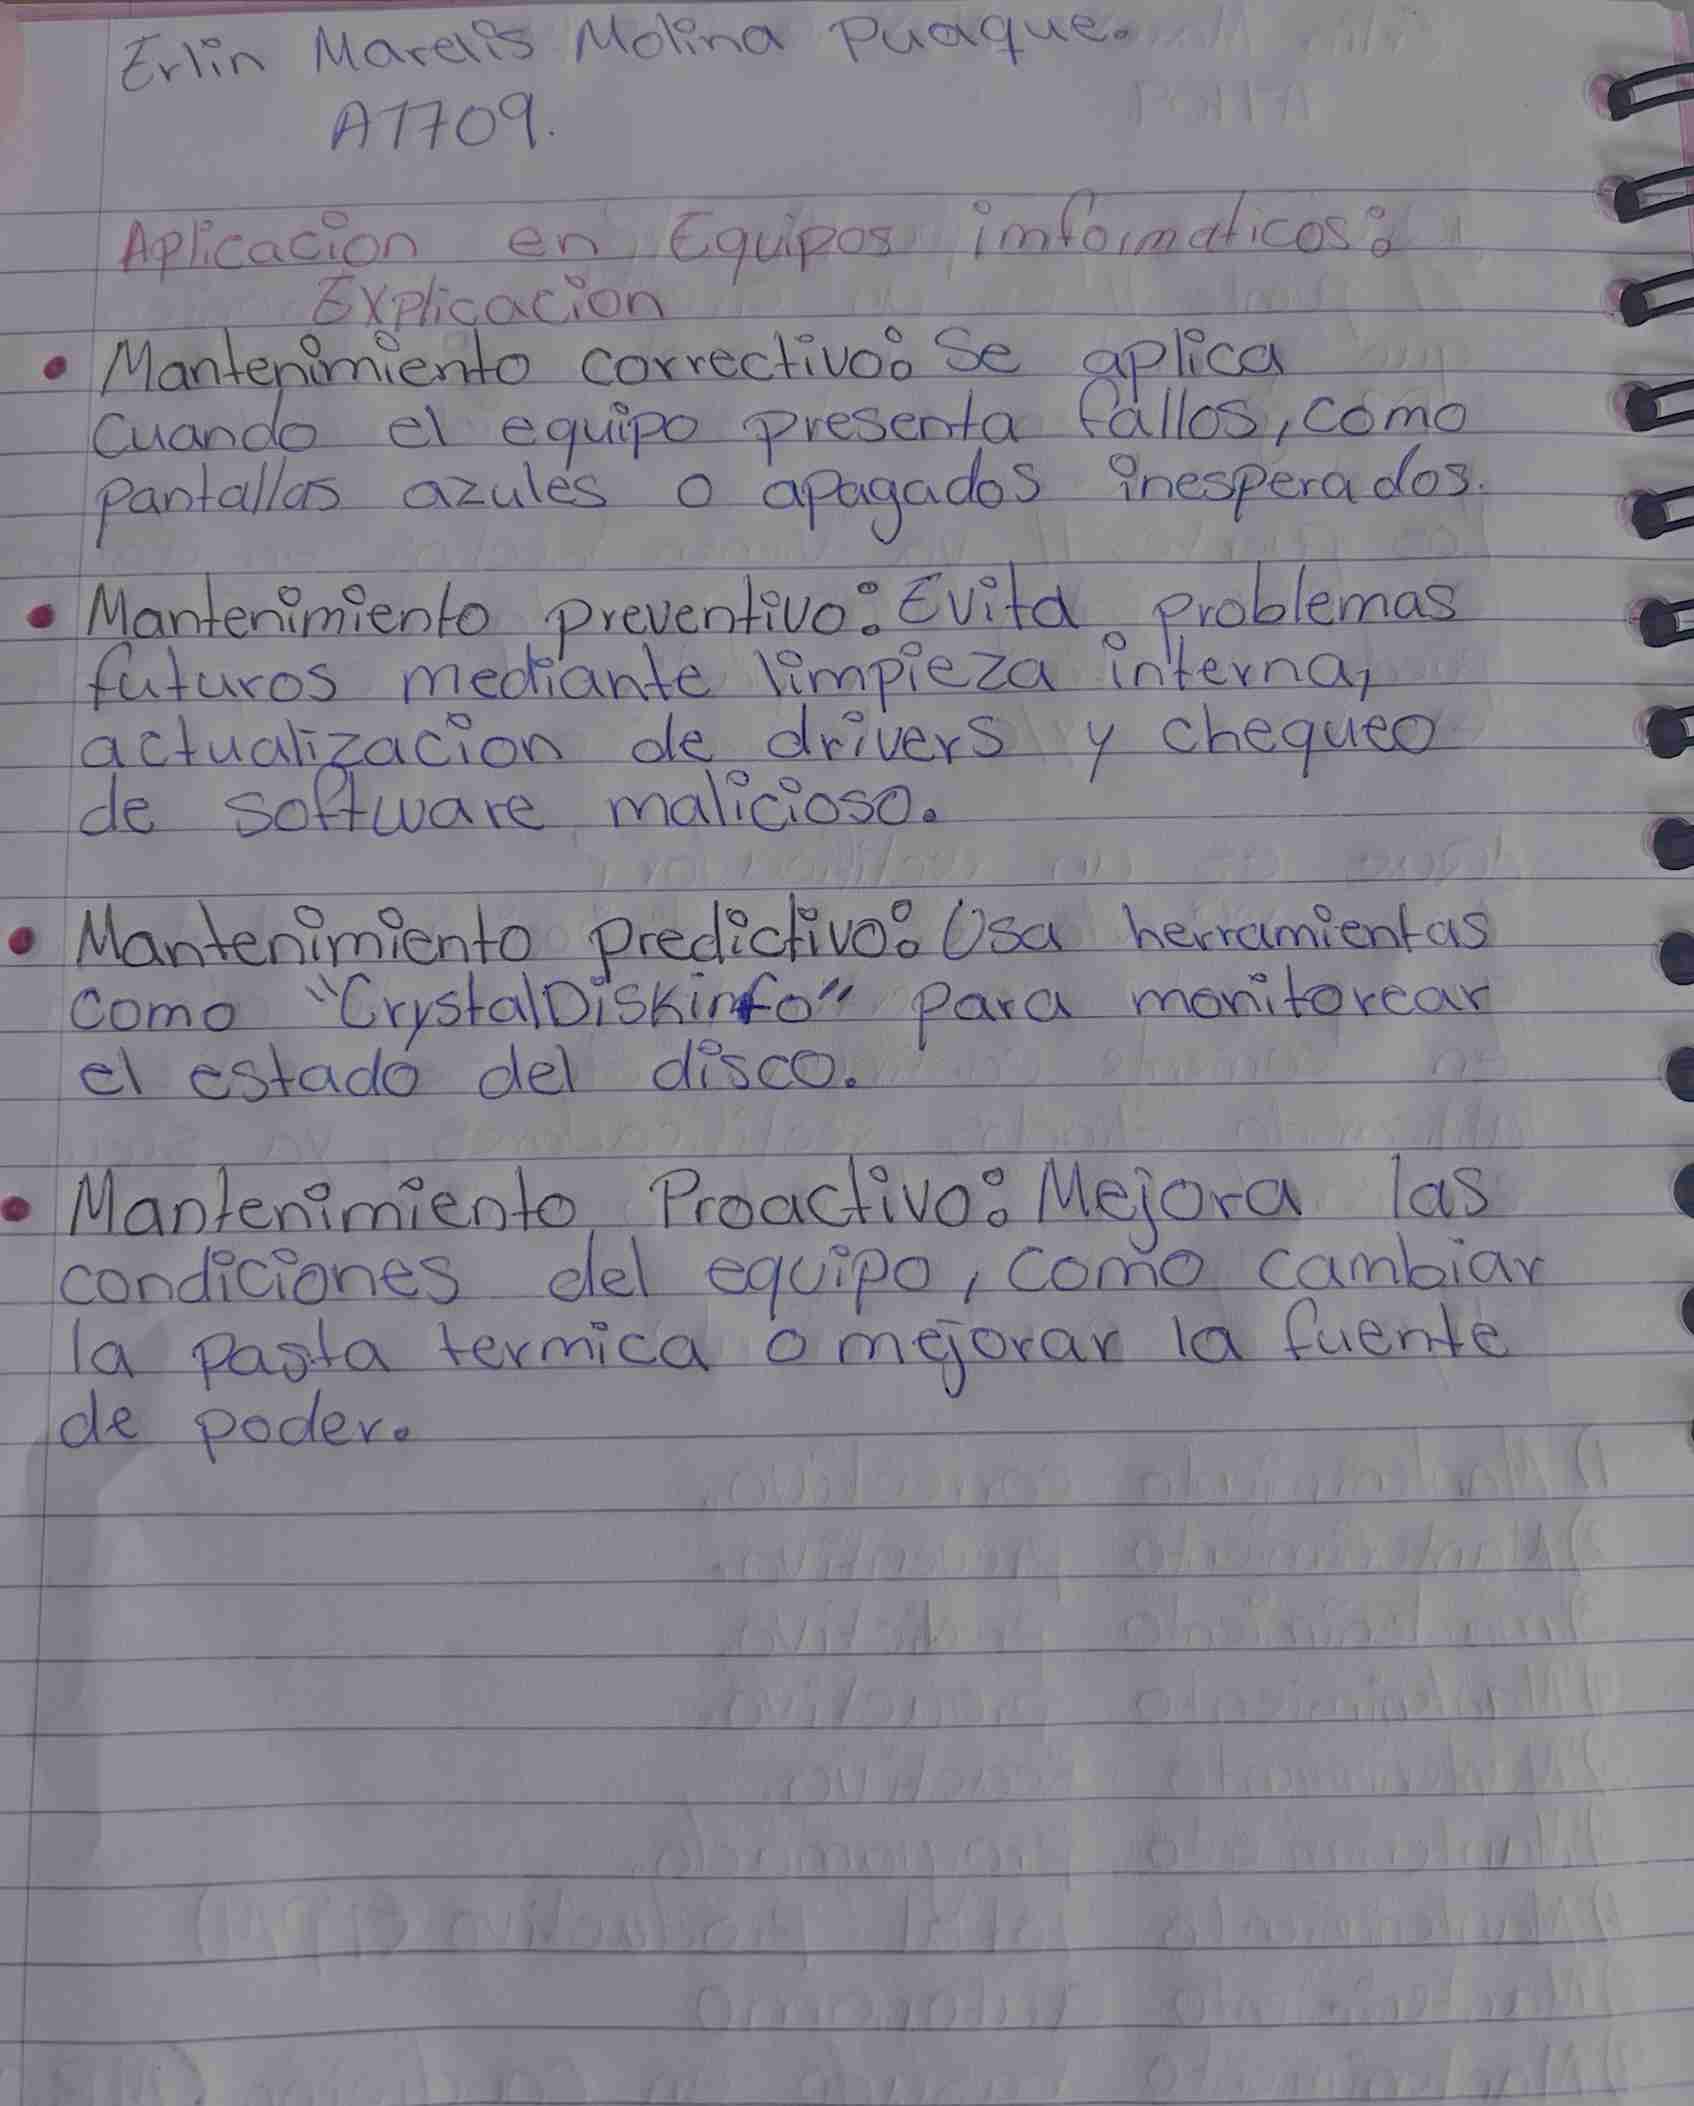 Erlin Marelis Molina Puaque.
A1709.
Aplicacion en Equipos imformaticos:
Explicacion
• Mantenimiento correctivo: Se aplica
Cuando el equipo presenta fallos, como
pantallas azules o apagados inesperados.
• Mantenimiento preventivo: Evita problemas
futuros mediante limpieza interna,
actualizacion de drivers y chequeo
de software malicioso.
• Mantenimiento predictivo: Usa herramientas
como "CrystalDiskinfo" para monitorear
el estado del disco.
• Mantenimiento Proactivo: Mejora las
condiciones del equipo, como cambiar
la pasta termica o mejorar la fuente
de poder.